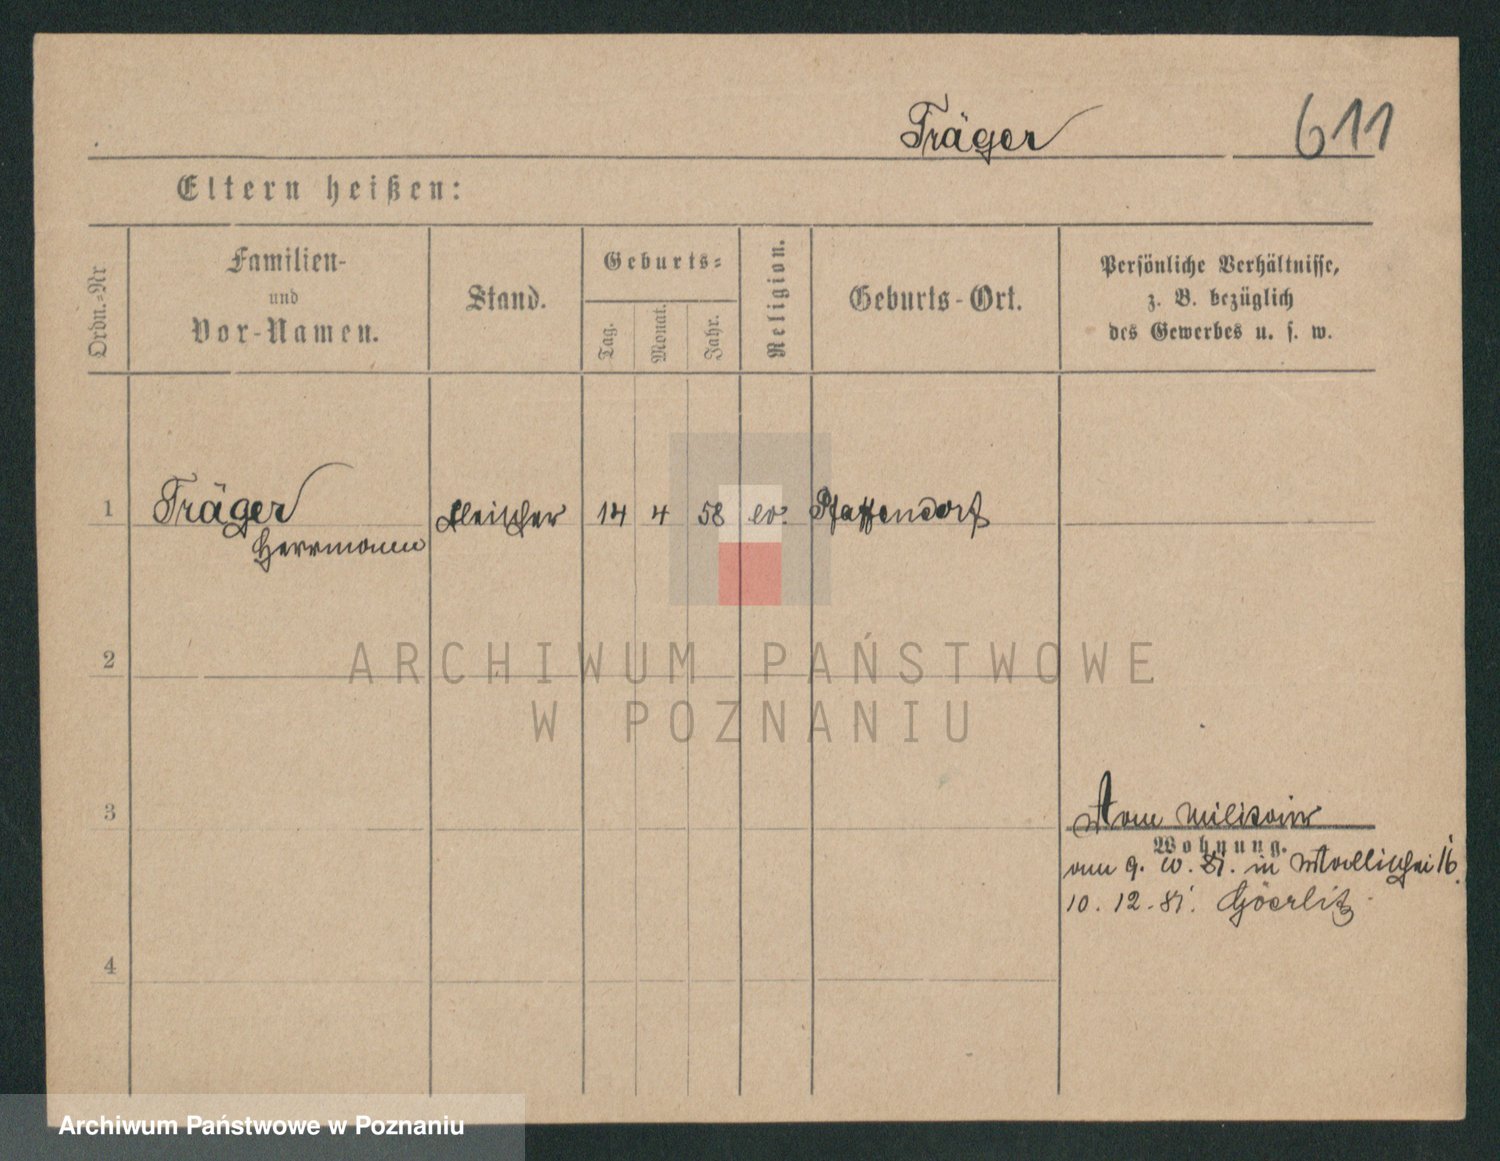 Träger 611
Eltern heißen:
Ordn.=Nr
Familien-
und
Vor-Namen.
Stand.
Geburts=
Tag.
Monat.
Jahr.
Religion.
Geburts-Ort.
Persönliche Verhältnisse,
z. B. bezüglich
des Gewerbes u. s. w.
1 Träger Fleischer 14 4 58 ev. Pfaffendorf
Herrmann
ARCHIWUM PAŃSTWOWE
W POZNANIU
2
3
Vom Militair
Wohnung.
am 9. 10. 81. in Wallischei 16.
10. 12. 81. Göerlitz
4
Archiwum Państwowe w Poznaniu